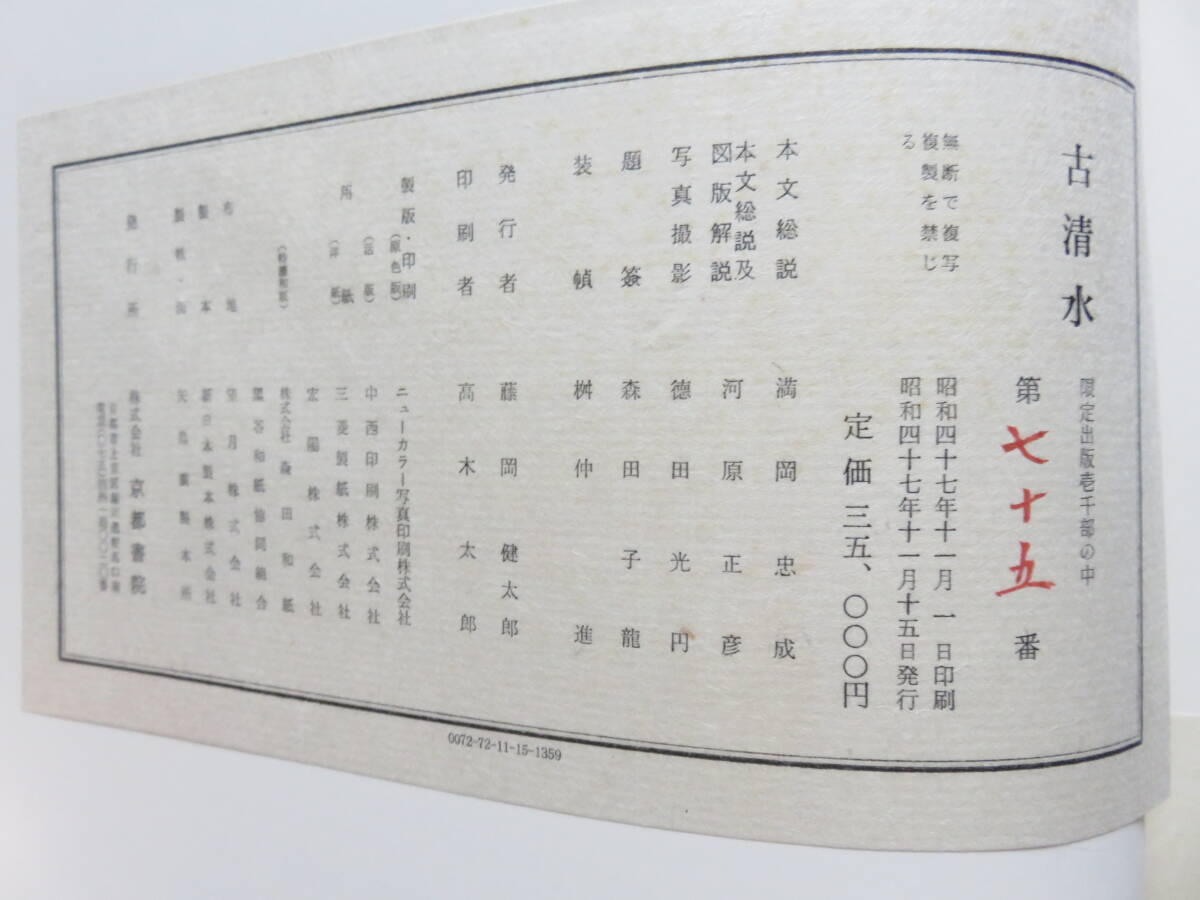 古清水
限定出版壱千部の中
第七十五番
昭和四十七年十一月一日印刷
昭和四十七年十一月十五日発行
無断で複写
複製を禁じ
る
定価三五、〇〇〇円
本文総説 満岡忠成
本文総説及
図版解説 河原正彦
写真撮影 徳田光円
題簽 森田子龍
装幀 桝仲進
発行者 藤岡健太郎
印刷者 高木太郎
製版・印刷
(原色版) ニューカラー写真印刷株式会社
(活版) 中西印刷株式会社
用紙
(洋紙) 三菱製紙株式会社
宏陽株式会社
株式会社森田和紙
黒谷和紙協同組合
布地 望月株式会社
製本 新日本製本株式会社
発行所 株式会社京都書院
0072-72-11-15-1359